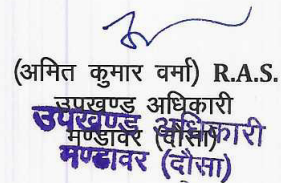 (अमित कुमार वर्मा) R.A.S.
उपखण्ड अधिकारी
मण्डावर (दौसा)
उपखण्ड अधिकारी
मण्डावर (दौसा)